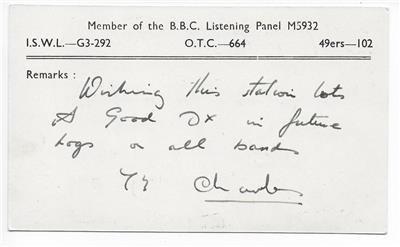 Member of the B.B.C. Listening Panel M5932
I.S.W.L.—G3-292 O.T.C.—664 49ers—102
Remarks :
Wishing this station lots
of Good Dx in future
Logs on all bands